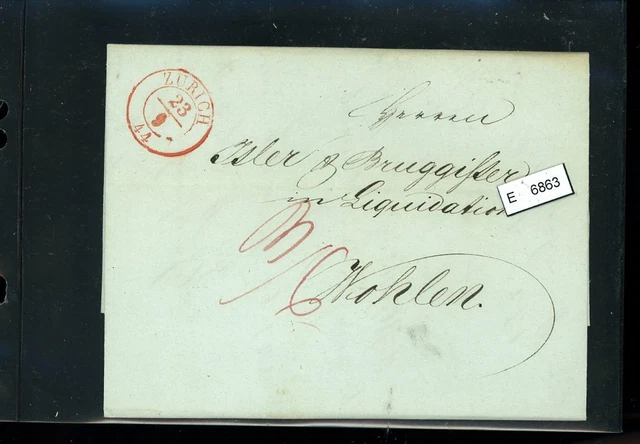 ZÜRICH
23
9
44
Herren
Isler & Bruggisser
in Liquidation
E 6863
Wohlen.